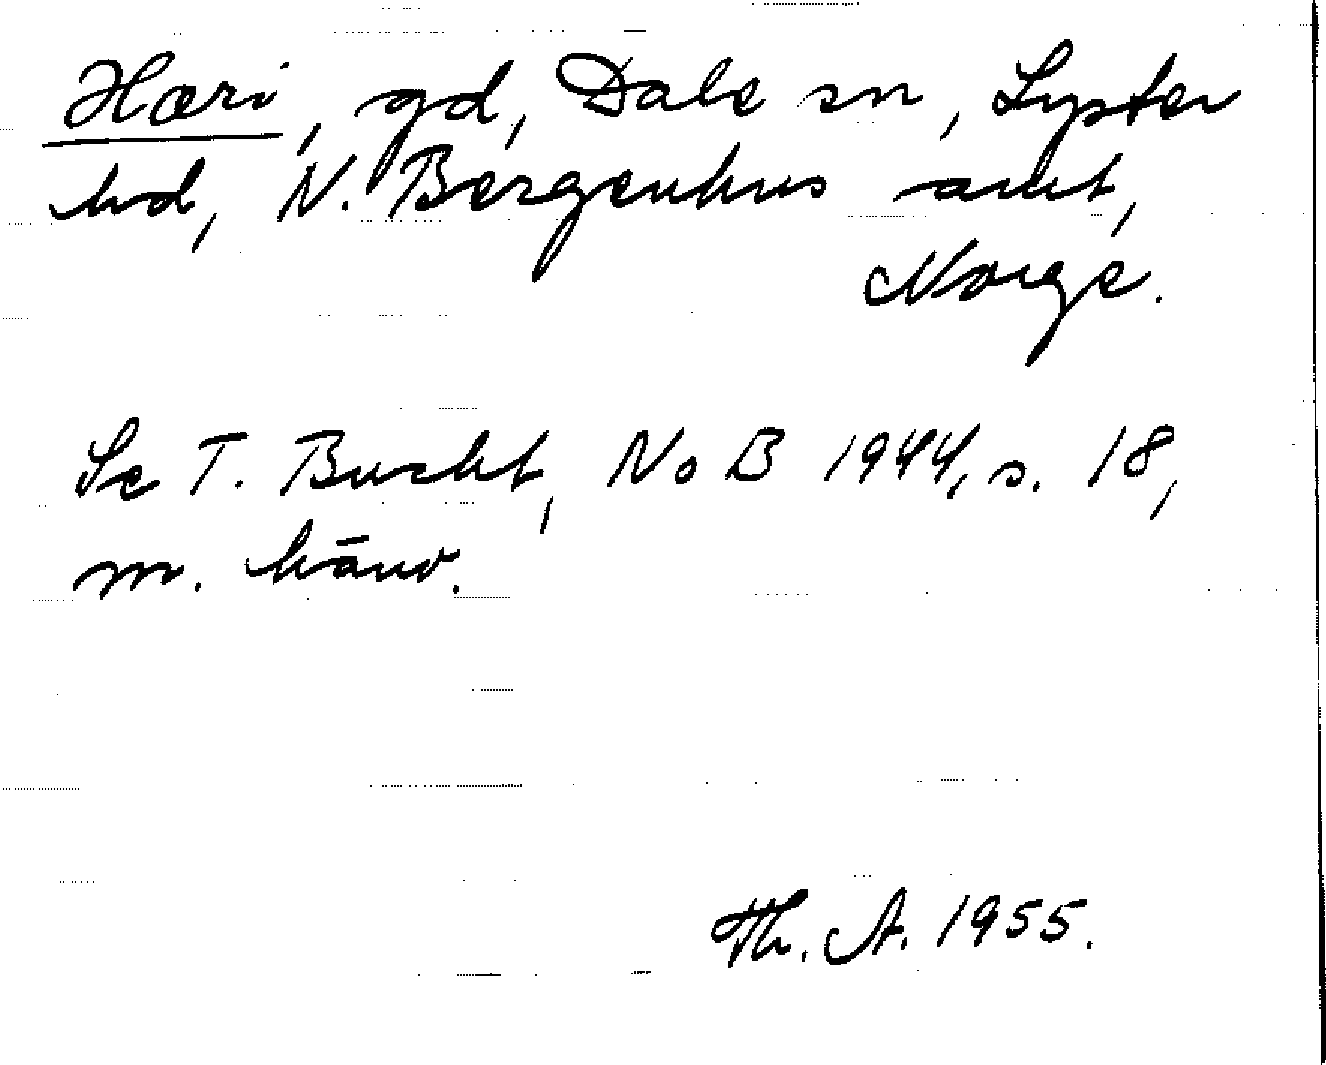 Hæri, gd, Dale sn, Lyster
hd, N. Bergenhus amt,
Norge.
Se T. Bucht, NoB 1944, s. 18,
m. hänv.
Th. A. 1955.